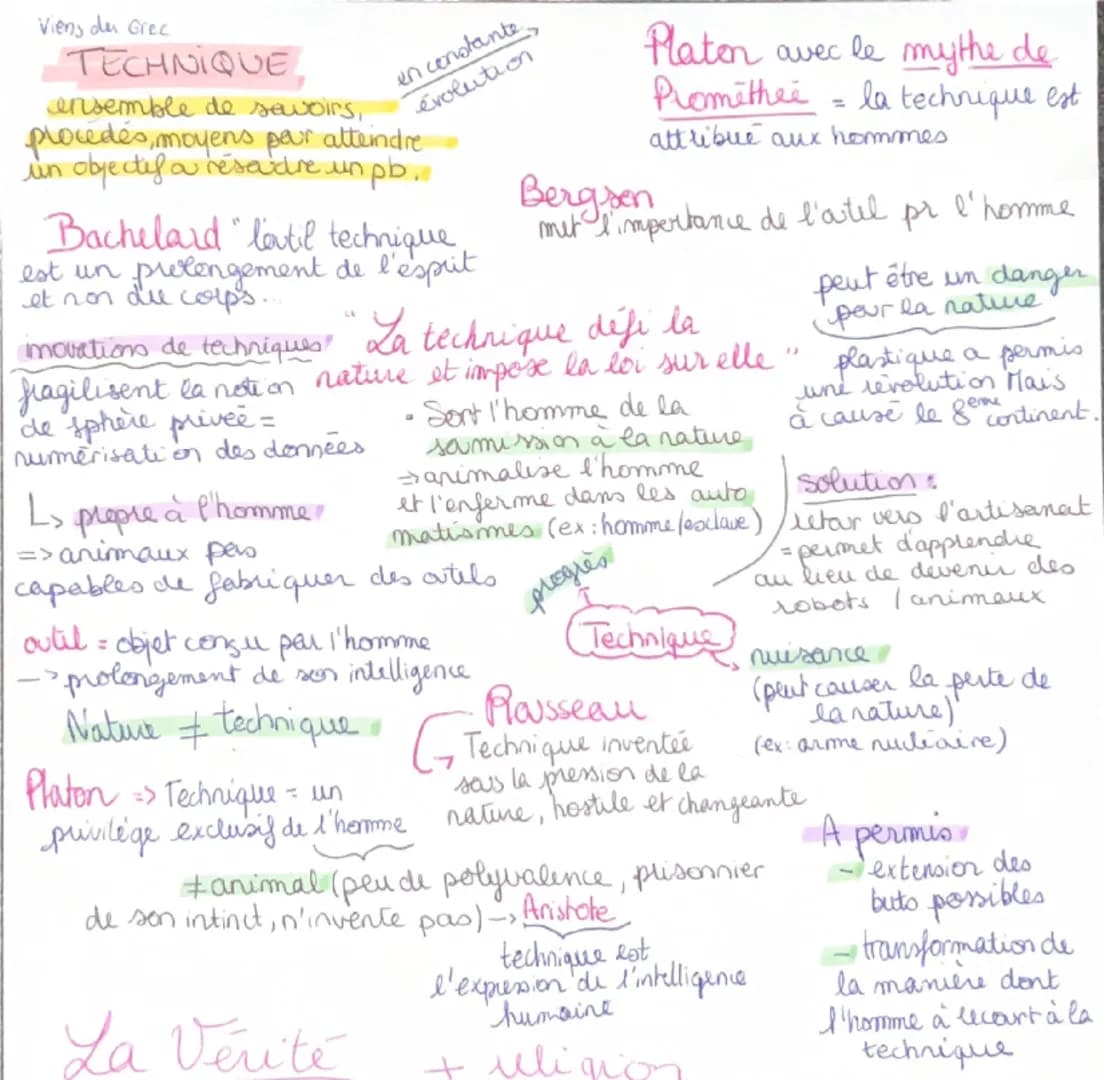 Viens du Grec
TECHNIQUE
en constante
évolution
ensemble de savoirs,
procédés, moyens par atteindre
un objectif a résoudre un pb.
Platon avec le mythe de
Prométhée = la technique est
attribué aux hommmes
Bergson
met l'importance de l'outil pr l'homme
Bachelard "l'outil technique
est un prolongement de l'esprit
et non du corps...
peut être un danger
pour la nature
plastique a permis
une révolution Mais
à causé le 8ème continent.
inovations de techniques
fragilisent la notion
de sphère privée =
numérisation des données
"La technique défi la
nature et impose la loi sur elle"
• Sort l'homme de la
soumission à la nature
=> animalise l'homme
et l'enferme dans les auto
matismes (ex : homme/esclave)
solution :
retour vers l'artisanat
= permet d'apprendre
au lieu de devenir des
robots / animaux
↳ propre à l'homme
=> animaux pas
capables de fabriquer des outils
progrès
Technique
nuisance
(peut causer la perte de
la nature)
(ex: arme nucléaire)
outil = objet conçu par l'homme
-> prolongement de son intelligence
Nature ≠ technique
Rousseau
Technique inventée
sous la pression de la
nature, hostile et changeante
Platon => Technique = un
privilège exclusif de l'homme
≠ animal (peu de polyvalence, prisonnier
de son intinct, n'invente pas) -> Aristote
technique est
l'expression de l'intelligence
humaine
A permis
- extension des
buts possibles
- transformation de
la manière dont
l'homme à recourt à la
technique
La Vérité + religion